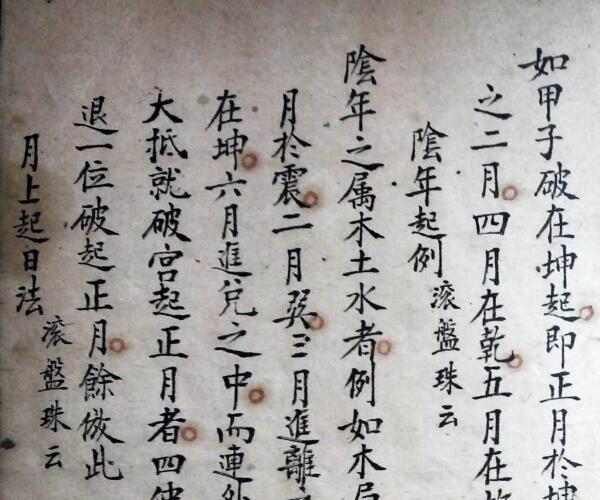 如甲子破在坤起即正月於坤
之二月四月在乾五月在
陰年起例 滾盤珠云
陰年之属木土水者例如木局
月於震二月巽三月進離
在坤六月進兌之中而連
大抵就破宫起正月者四
退一位破起正月餘倣此
月上起日法 滾盤珠云